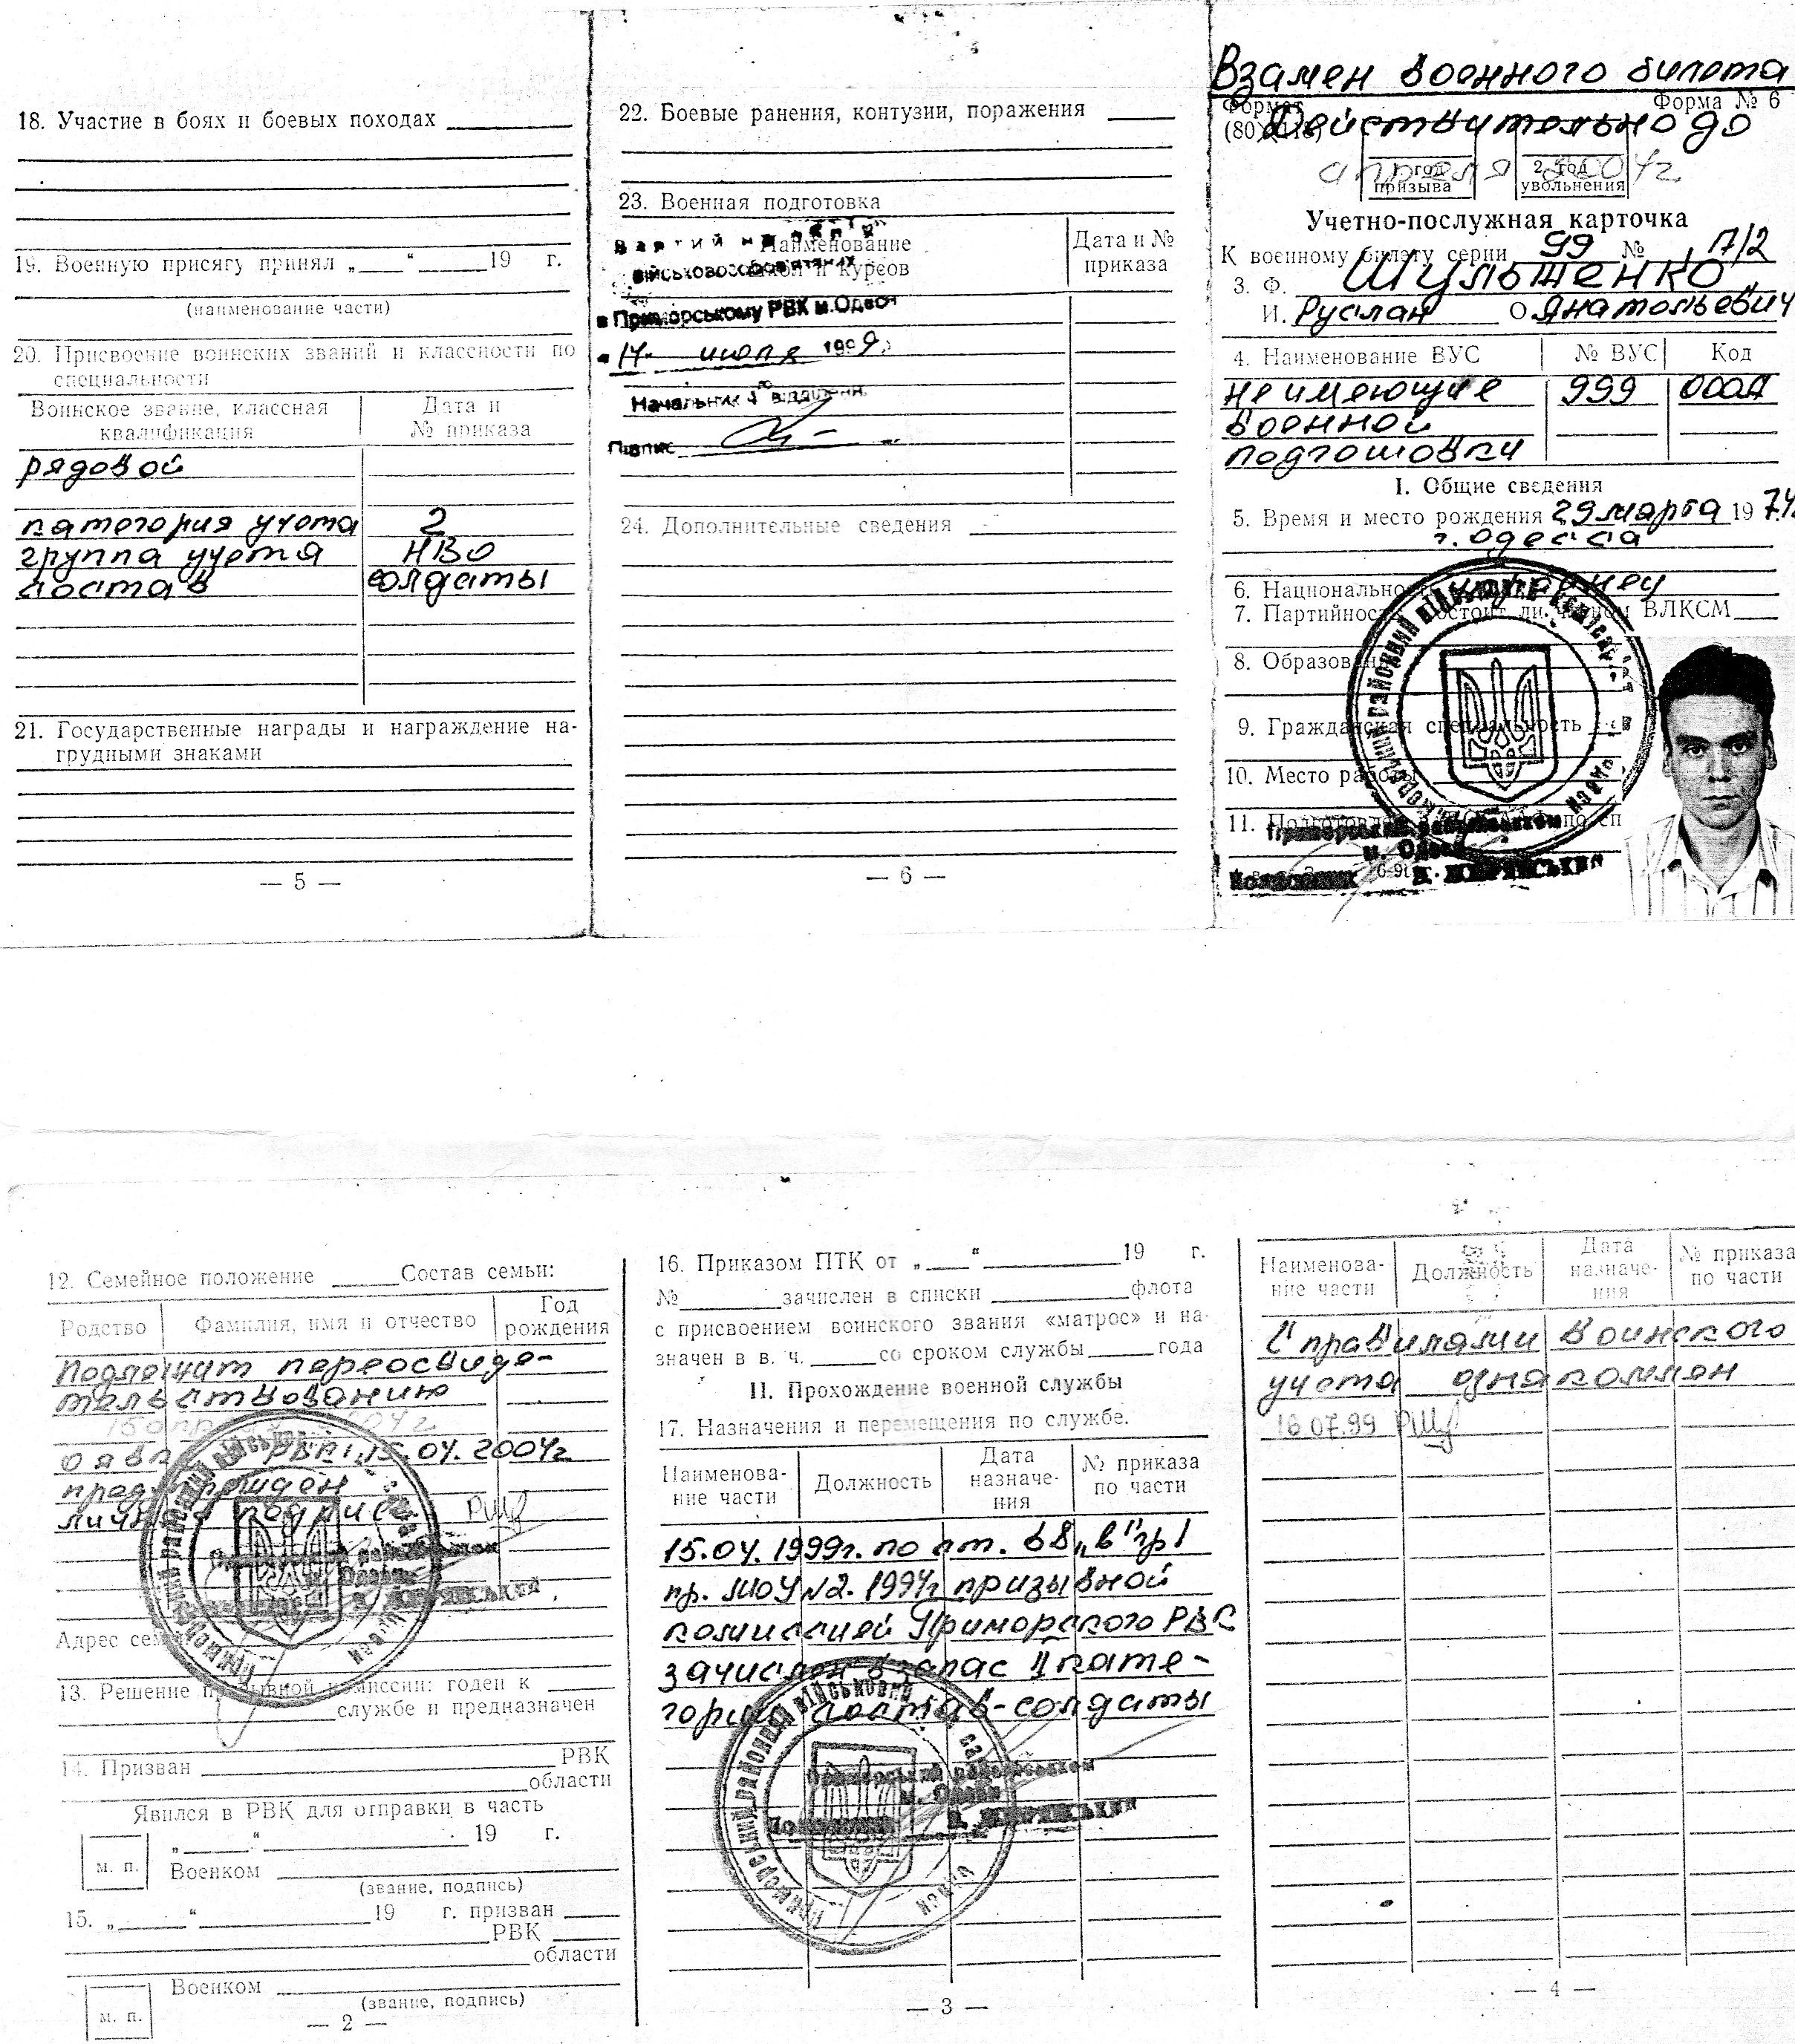 18. Участие в боях и боевых походах
19. Военную присягу принял „ “ 19 г.
(наименование части)
20. Присвоение воинских званий и классности по
специальности
Воинское звание, классная
квалификация
Дата и
№ приказа
рядовой
категория учета 2
группа учета НВО
состав солдаты
21. Государственные награды и награждение на-
грудными знаками
— 5 —
22. Боевые ранения, контузии, поражения
23. Военная подготовка
Наименование
школ и курсов
Дата и №
приказа
військовозобов'язаних
в Приморському РВК м.Одеси
" 14 " июля 1999р.
Начальник 4 відділення
Підпис
24. Дополнительные сведения
— 6 —
Взамен военного билета
Формат
Форма № 6
Действительно до
апреля 2004г.
1. год
призыва
2. год
увольнения
Учетно-послужная карточка
К военному билету серии 99 № 17/2
3. Ф. Шульженко
И. Руслан О. Анатольевич
4. Наименование ВУС № ВУС Код
не имеющие 999 000А
военной
подготовки
I. Общие сведения
5. Время и место рождения 29 марта 1974г.
г. Одесса
6. Национальность украинец
7. Партийность, состоит ли членом ВЛКСМ
8. Образование
9. Гражданская специальность
10. Место работы
11.
Приморський райвійськком
м. Одеси
Полковник
12. Семейное положение Состав семьи:
Родство
Фамилия, имя и отчество
Год
рождения
Подлежит переосвиде-
тельствованию
15 апреля 2004г.
о явке в РВК 15.04.2004г.
предупрежден
личная подпись
Адрес семьи
13. Решение призывной комиссии: годен к
службе и предназначен
14. Призван РВК
области
Явился в РВК для отправки в часть
„ “ 19 г.
м. п.
Военком
(звание, подпись)
15. „ “ 19 г. призван
РВК
области
Военком
м. п.
(звание, подпись)
— 2 —
16. Приказом ПТК от „ “ 19 г.
№ зачислен в списки флота
с присвоением воинского звания «матрос» и на-
значен в в. ч. со сроком службы года
II. Прохождение военной службы
17. Назначения и перемещения по службе.
Наименова-
ние части
Должность
Дата
назначе-
ния
№ приказа
по части
15.04.1999г. по ст. 68 „в" гр I
пр. МОУ №2. 1994г призывной
комиссией Приморского РВК
зачислен в запас II кате-
гории состав-солдаты
Приморський райвійськком
м. Одеси
Полковник
— 3 —
Наименова-
ние части
Должность
Дата
назначе-
ния
№ приказа
по части
С правилами воинского
учета ознакомлен
16.07.99
— 4 —